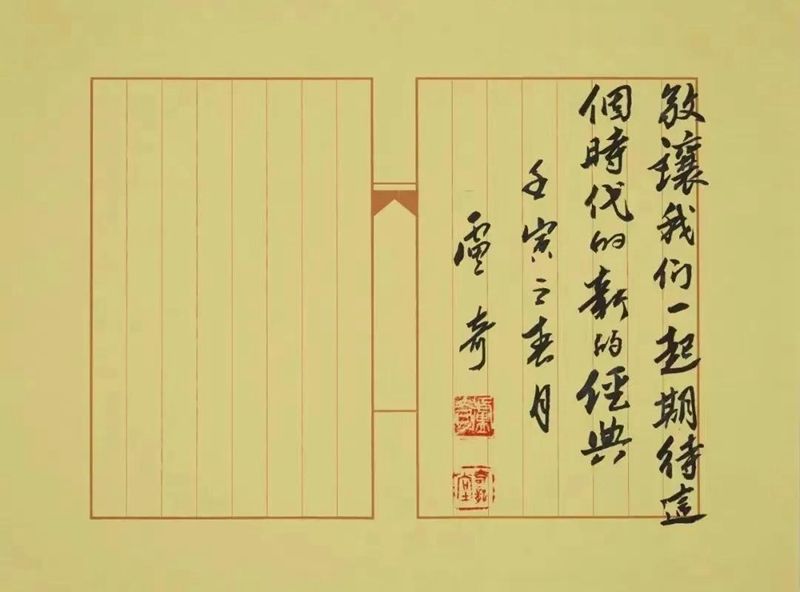 讓我们一起期待這
個時代的新的經典
壬寅之春月
盧奇